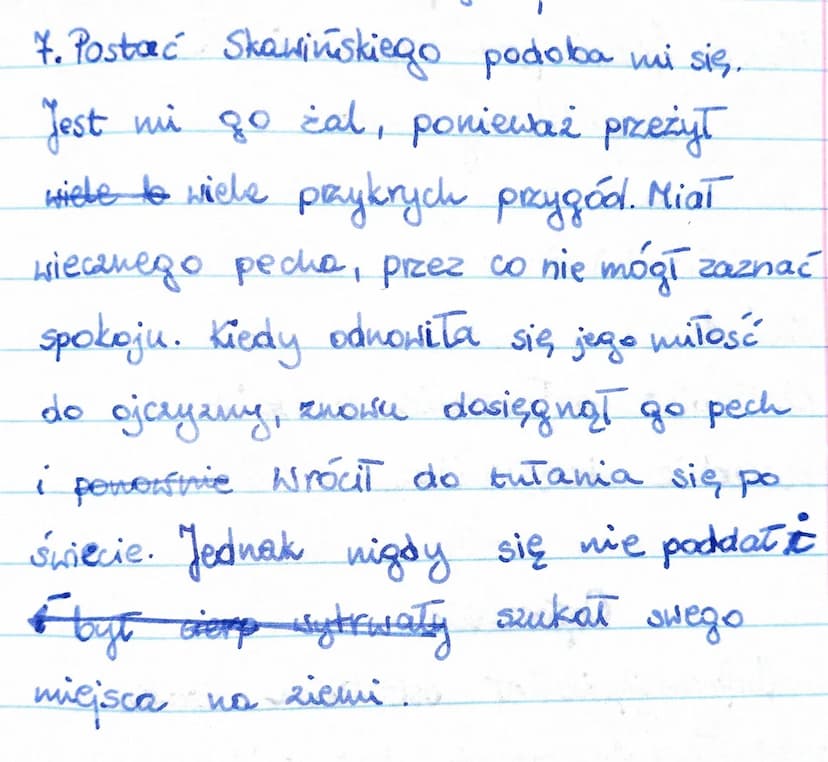 7. Postać Skawińskiego podoba mi się.
Jest mi go żal, ponieważ przeżył
wiele b wiele przykrych przygód. Miał
wiecznego pecha, przez co nie mógł zaznać
spokoju. Kiedy odnowiła się jego miłość
do ojczyzny, znowu dosięgnął go pech
i ponownie wrócił do tułania się po
świecie. Jednak nigdy się nie poddał i
był cierp wytrwały szukał swego
miejsca na ziemi.